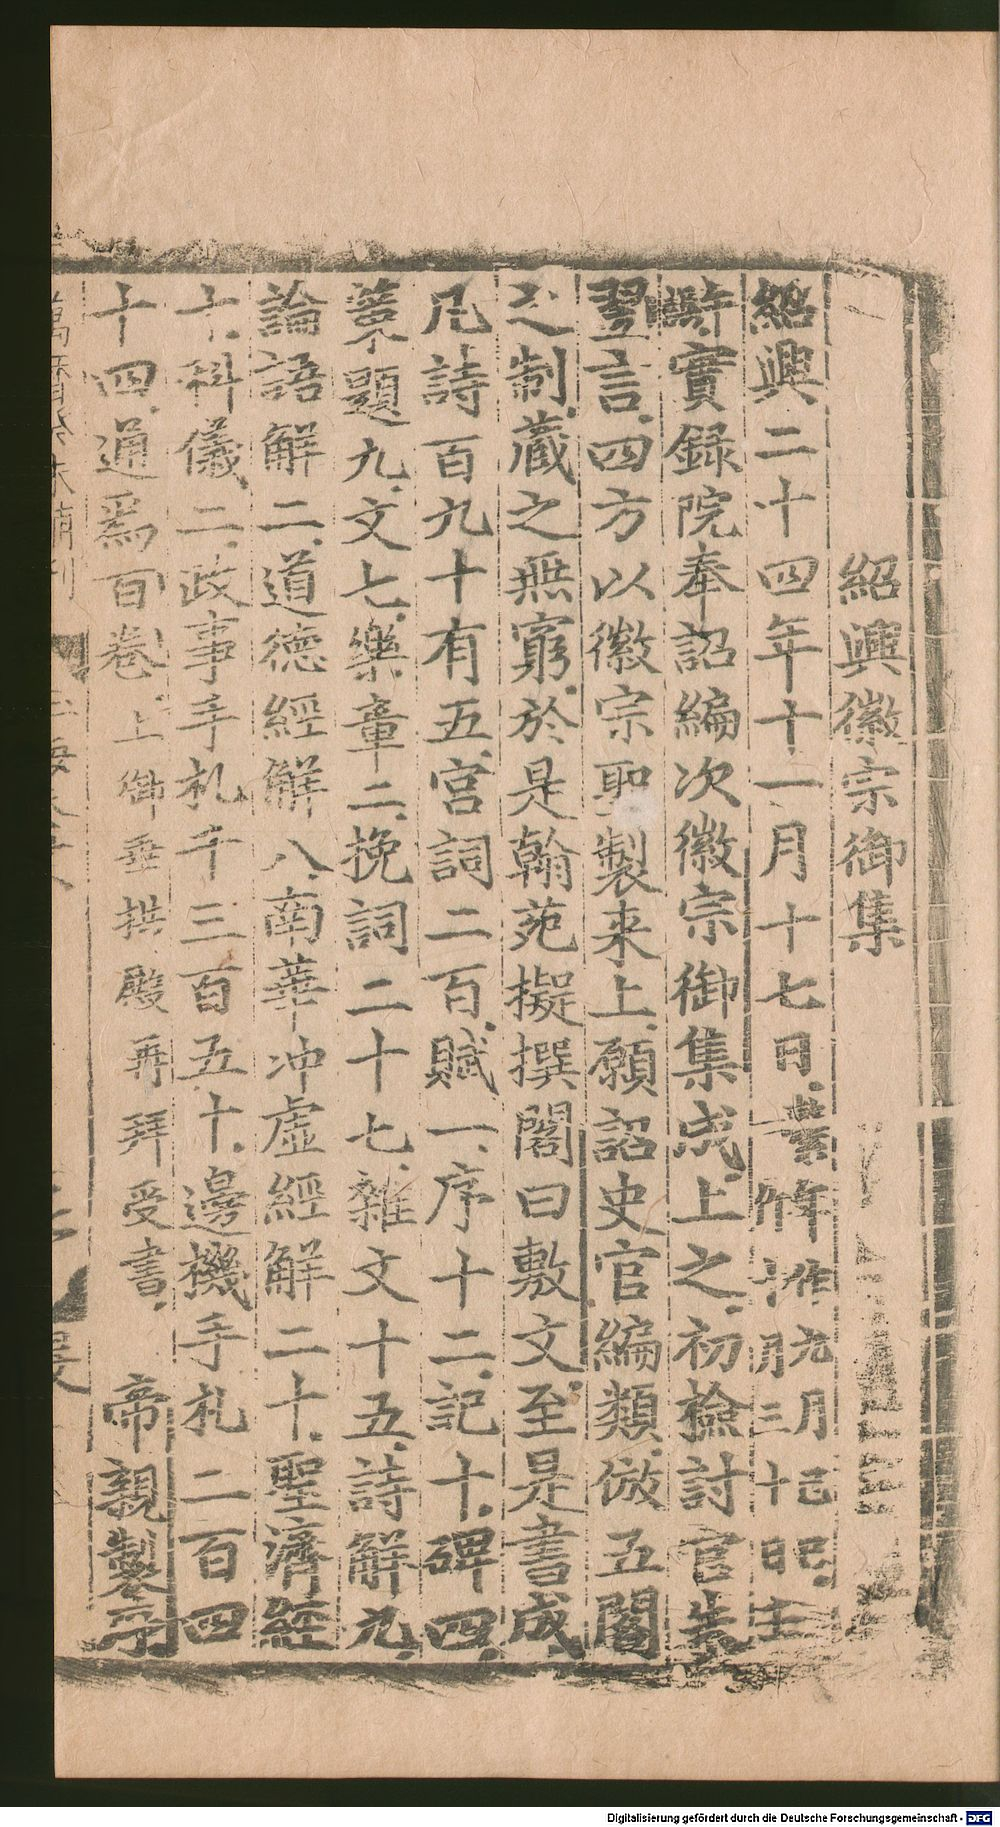 紹興徽宗御集
紹興二十四年十一月十七日
實録院奉詔編次徽宗御集成上之初檢討官朱
翌言四方以徽宗聖製来上願詔史官編類倣五閣
之制藏之無窮於是翰苑擬撰閣曰敷文至是書成
凡詩百九十有五宮詞二百賦一序十二記十碑四
策題九文七樂章二挽詞二十七雜文十五詩解九
論語解二道德經解八南華冲虛經解二十聖濟經
十科儀二政事手札千三百五十邊機手札二百四
十四通爲百卷上御垂拱殿再拜受書 帝親製序
Digitalisierung gefördert durch die Deutsche Forschungsgemeinschaft - DFG